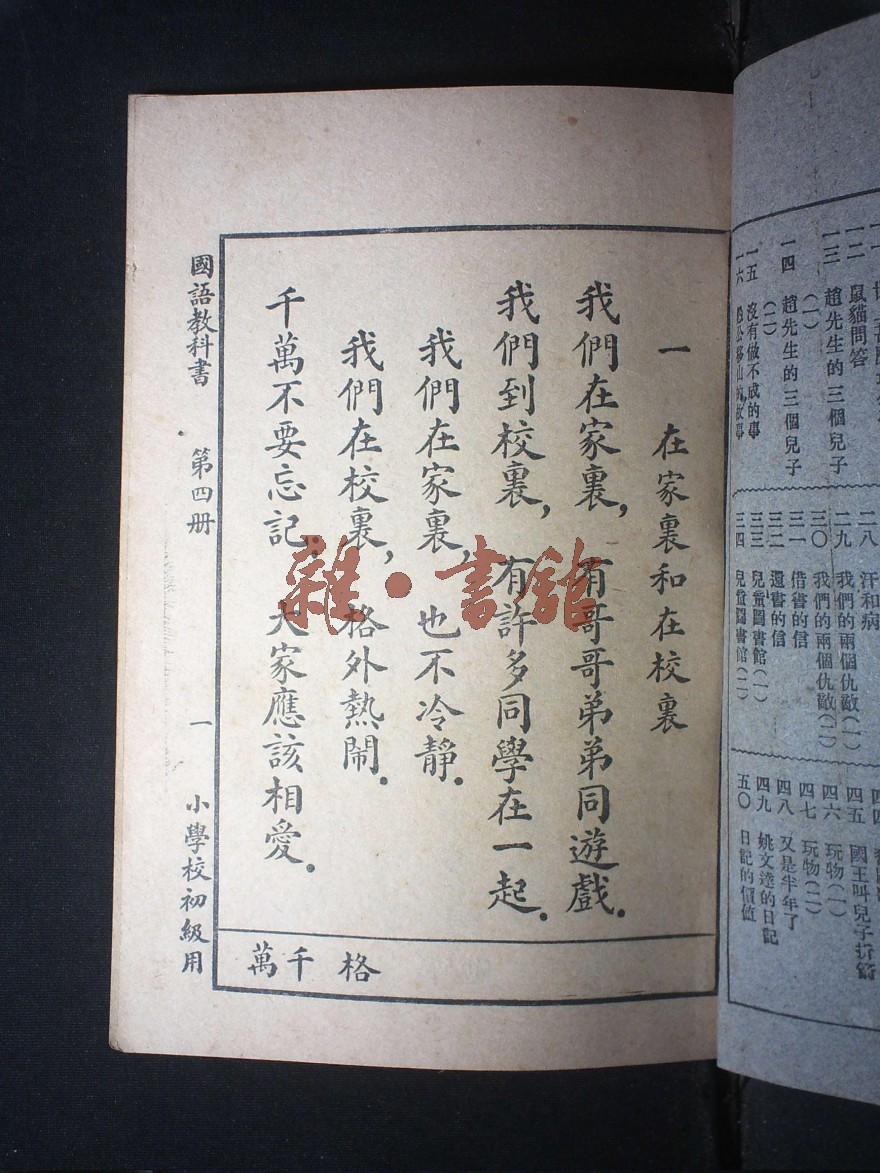 一 在家裏和在校裏
我們在家裏，有哥哥弟弟同遊戲．
我們到校裏，有許多同學在一起．
我們在家裏，也不冷靜．
我們在校裏，格外熱鬧．
千萬不要忘記：大家應該相愛．
格 千 萬
國語教科書 第四册 一 小學校初級用
雜·書館
一二 鼠貓問答
一三 趙先生的三個兒子（一）
一四 趙先生的三個兒子（二）
一五 沒有做不成的事
一六 愚公移山的故事
二八 汗和病
二九 我們的兩個仇敵（一）
三〇 我們的兩個仇敵（二）
三一 借書的信
三二 還書的信
三三 兒童圖書館（一）
三四 兒童圖書館（二）
四五 國王叫兒子折箭
四六 玩物（一）
四七 玩物（二）
四八 又是半年了
四九 姚文達的日記
五〇 日記的價值